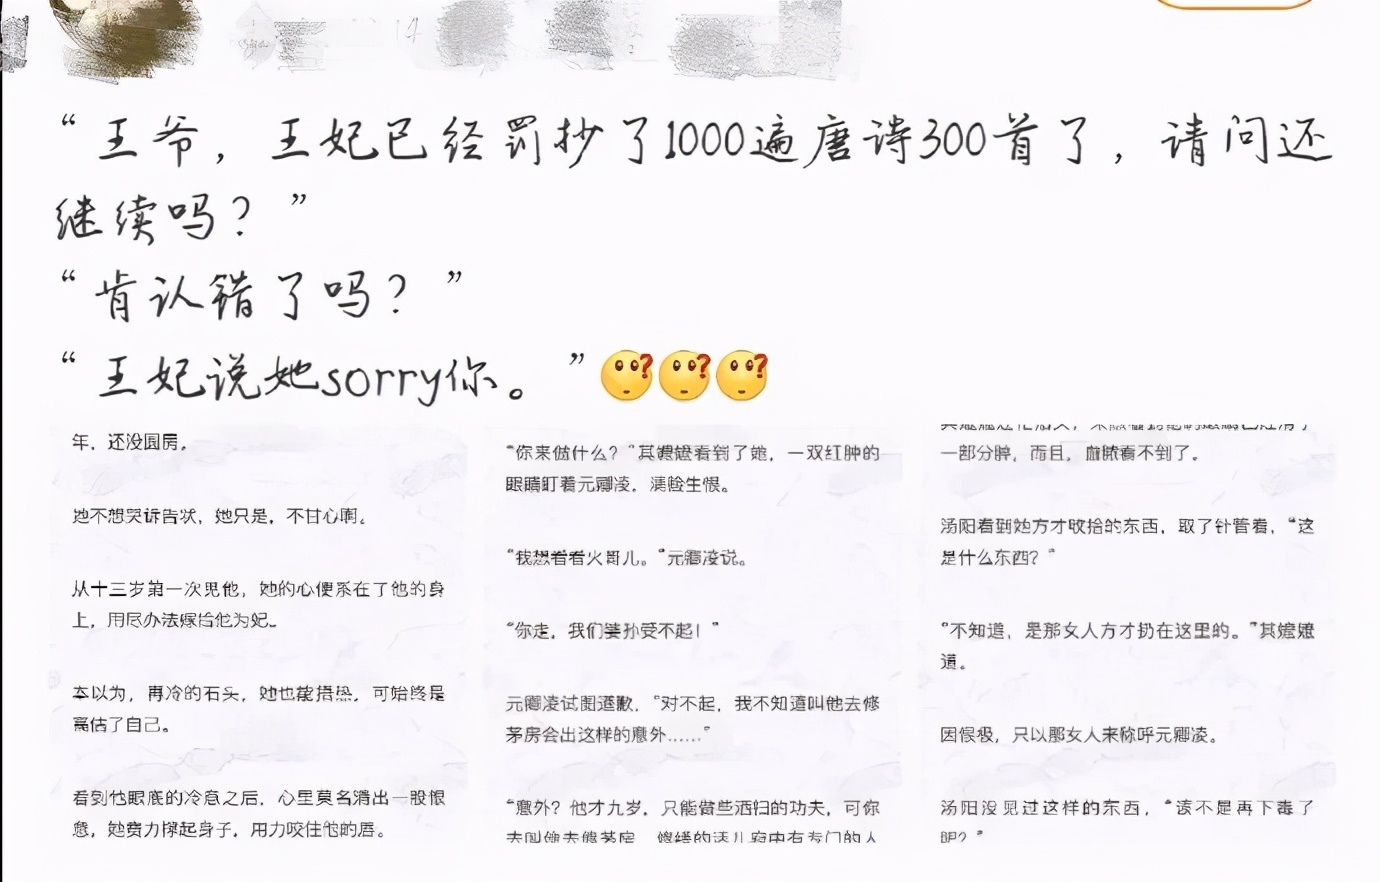 “王爷，王妃已经罚抄了1000遍唐诗300首了，请问还
继续吗？”
“肯认错了吗？”
“王妃说她sorry你。”
年，还没圆房。
她不想哭诉告状，她只是，不甘心啊。
从十三岁第一次见他，她的心便系在了他的身
上，用尽办法嫁给他为妃。
本以为，再冷的石头，她也能捂热，可始终是
高估了自己。
看到他眼底的冷意之后，心里莫名滑出一股恨
意，她费力撑起身子，用力咬住他的唇。
“你来做什么？”其嬷嬷看到了她，一双红肿的
眼睛盯着元卿凌，满脸生恨。
“我想看看火哥儿。”元卿凌说。
“你走，我们婆孙受不起！”
元卿凌试图道歉，“对不起，我不知道叫他去修
茅房会出这样的意外……”
“意外？他才九岁，只能做些洒扫的功夫，可你
去叫他去修茅房，修缮的活儿府中有专门的人
一部分肿，而且，血脓看不到了。
汤阳看到她方才收拾的东西，取了针管看，“这
是什么东西？”
“不知道，是那女人方才扔在这里的。”其嬷嬷
道。
因恨极，只以那女人来称呼元卿凌。
汤阳没见过这样的东西，“该不是再下毒了
吧？”